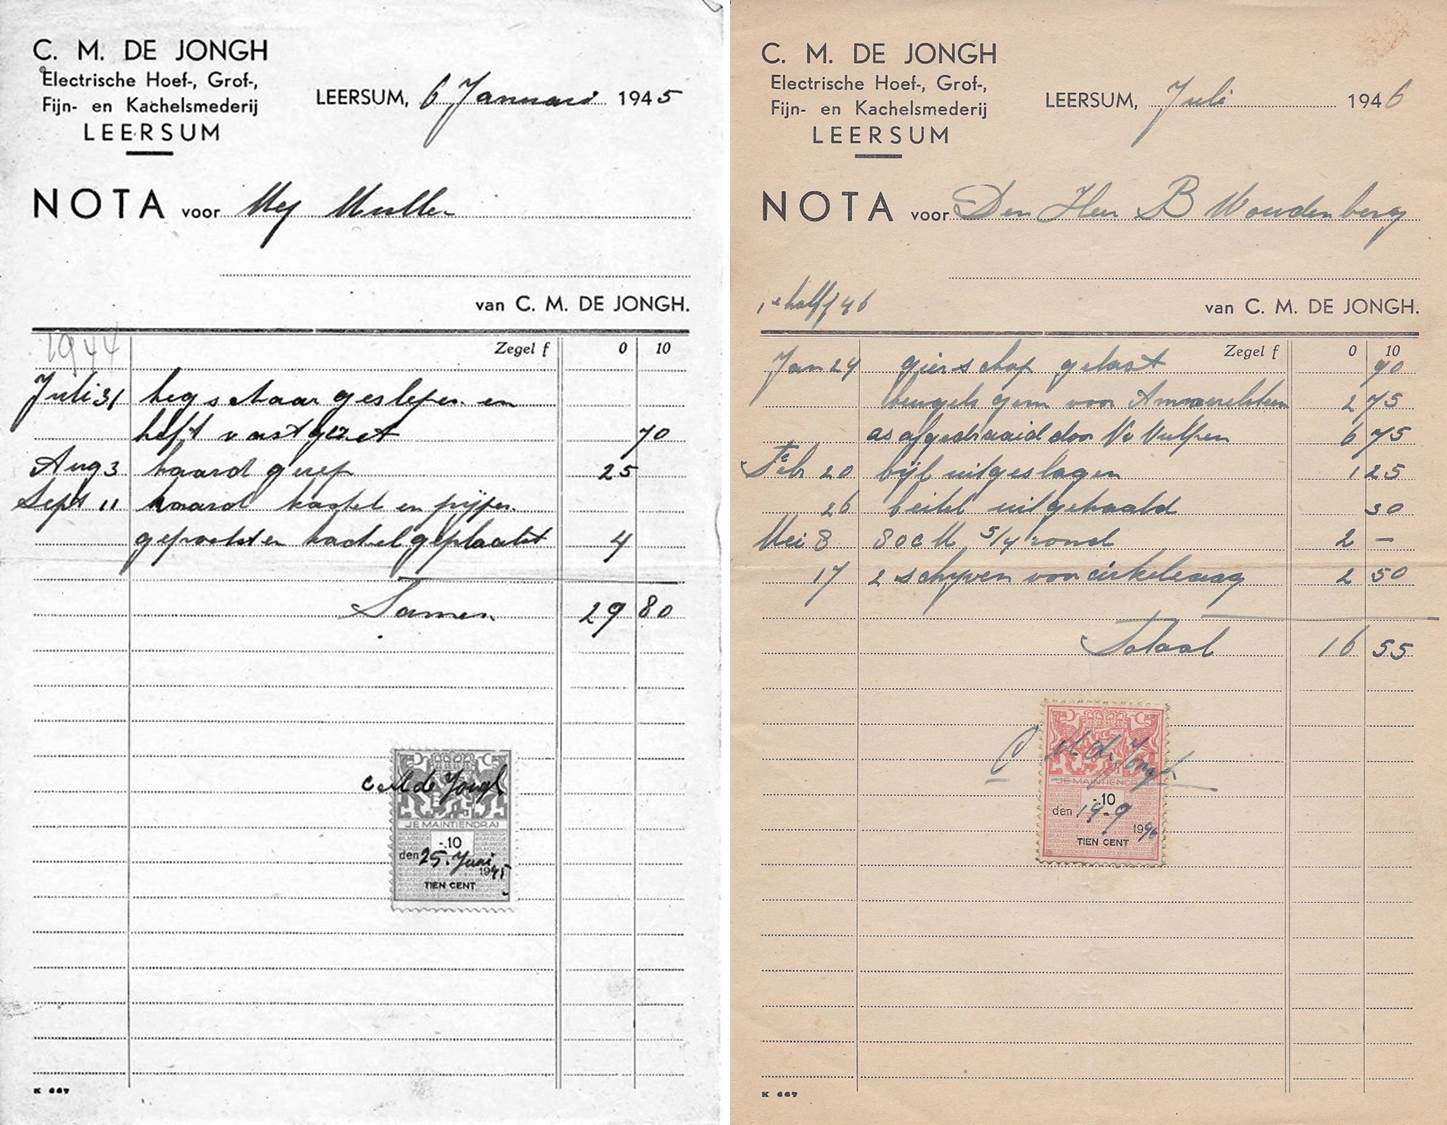 C. M. DE JONGH
Electrische Hoef-, Grof-,
Fijn- en Kachelsmederij
LEERSUM
LEERSUM, 6 Januari 1945
NOTA voor Mej Muller
van C. M. DE JONGH.
1944
Zegel f 0 10
Juli 31 hegschaar geslepen en
heft vast gezet 70
Aug 3 haard gerep 25
Sept 11 haard kachel en pijpen
gepoetst en kachel geplaatst 4
Samen 29 80
C M de Jongh
JE MAINTIENDRAI
-.10
den 25 Juni 1945
TIEN CENT
K 667
C. M. DE JONGH
Electrische Hoef-, Grof-,
Fijn- en Kachelsmederij
LEERSUM
LEERSUM, Juli 1946
NOTA voor Den Heer B Woudenberg
1e half j 46
van C. M. DE JONGH.
Zegel f 0 10
Jan 29 gierschop gelast 90
beugels gem voor Ammerelstein 2 75
as afgedraaid door Vulpen 6 75
Febr 20 bijl uitgeslagen 1 25
26 beitel uitgehaald 30
Mei 8 80 cM 5/4 rond 2 –
17 2 schijven voor cirkelzaag 2 50
Totaal 16 55
C M de Jongh
JE MAINTIENDRAI
-.10
den 19-9 1946
TIEN CENT
K 667